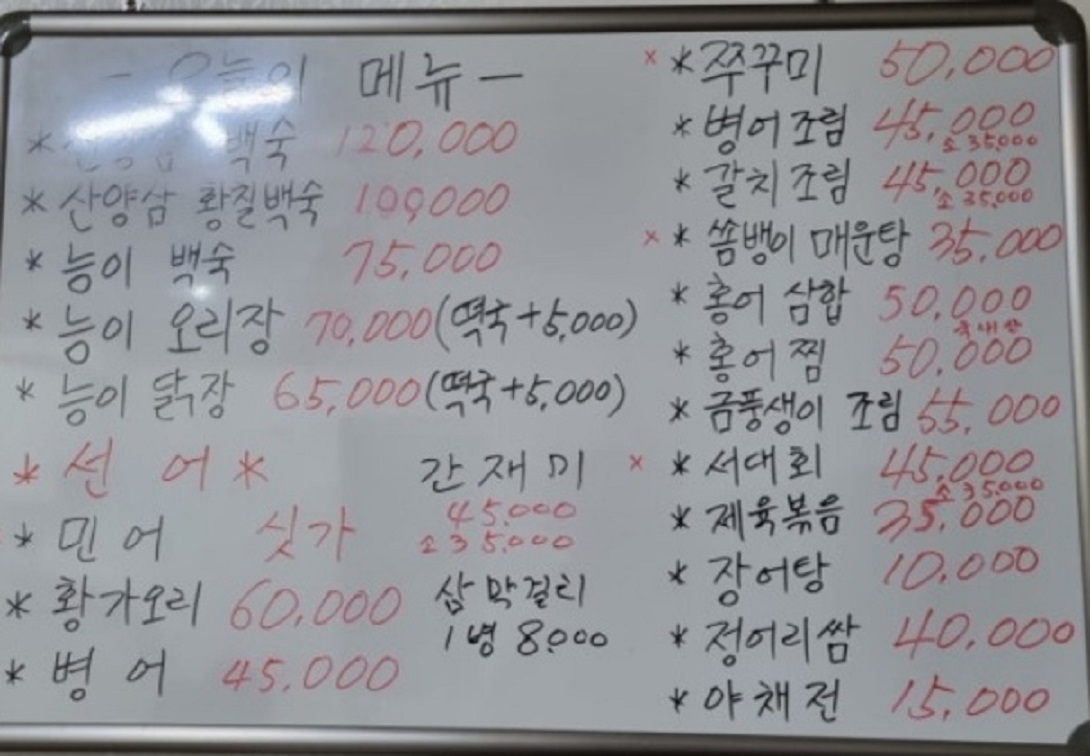 - 오늘의 메뉴 -
* 산양삼 백숙 120,000
* 산양삼 황칠백숙 109,000
* 능이 백숙 75,000
* 능이 오리장 70,000(떡국+5,000)
* 능이 닭장 65,000(떡국+5,000)
* 선 어 *
* 민 어 싯가
* 황가오리 60,000
* 병 어 45,000
간 재 미
45.000
소 35.000
삼 막걸리
1병 8.000
× * 쭈꾸미 50,000
* 병어조림 45,000
소 35,000
* 갈치조림 45,000
소 35,000
× * 쏨뱅이 매운탕 35,000
* 홍어 삼합 50,000
국내산
* 홍어 찜 50,000
* 금풍생이 조림 55,000
× * 서대회 45,000
소 35,000
* 제육볶음 35,000
* 장어탕 10,000
* 정어리쌈 40,000
* 야채전 15,000